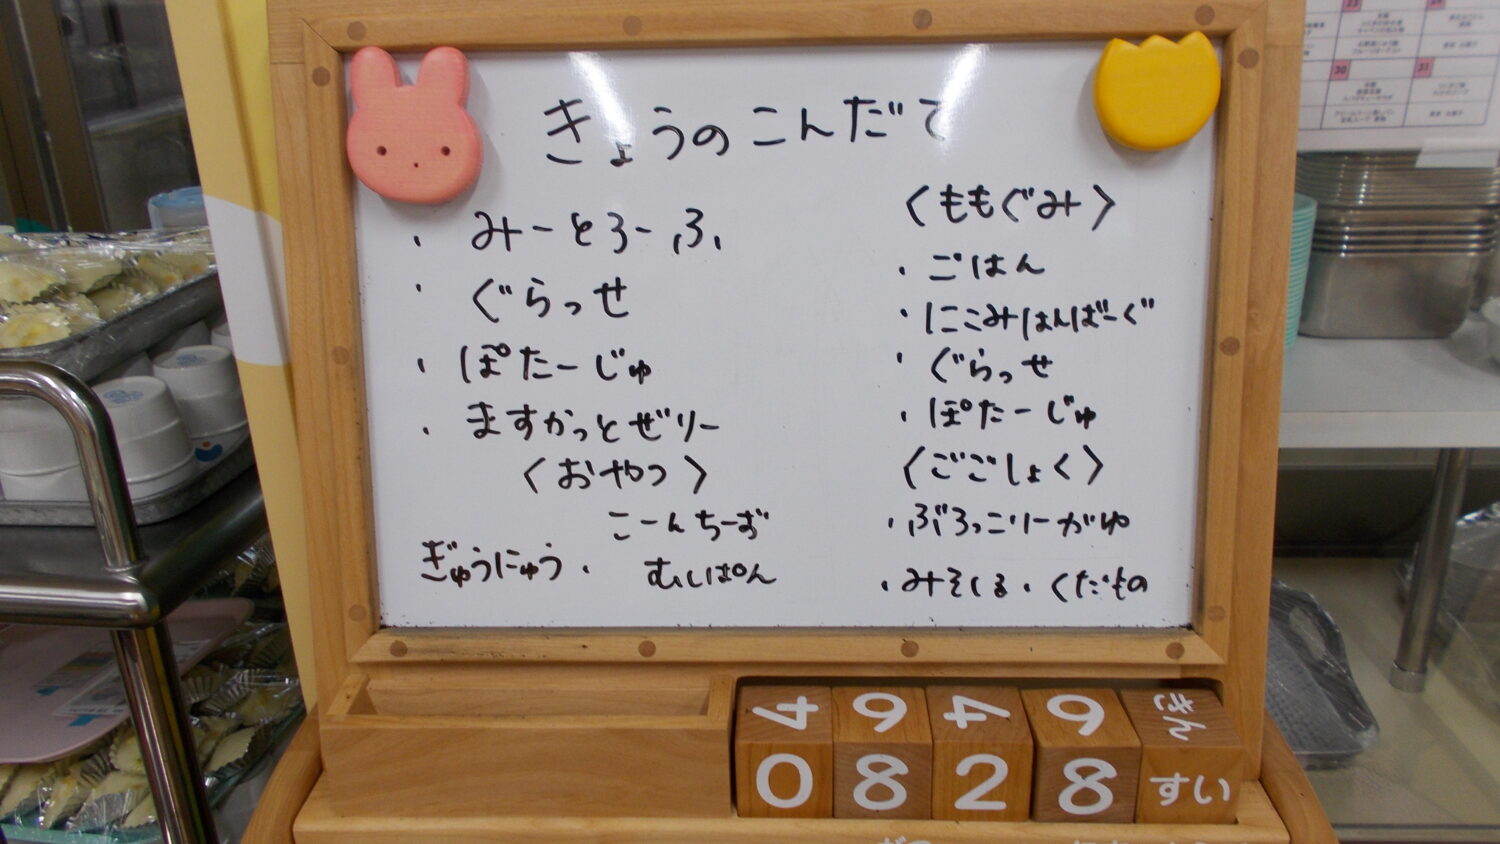 きょうのこんだて
・みーとろーふ
・ぐらっせ
・ぽたーじゅ
・ますかっとぜりー
〈おやつ〉
ぎゅうにゅう・こーんちーず
むしぱん
〈ももぐみ〉
・ごはん
・にこみはんばーぐ
・ぐらっせ
・ぽたーじゅ
〈ごごしょく〉
・ぶろっこりーがゆ
・みそしる・くだもの
4 6 4 6 きん
0 8 2 8 すい
30
31